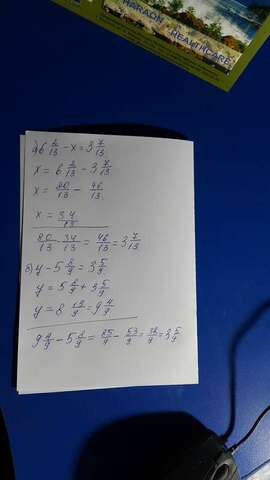 HARAON
HEALTHCARE
а) 6 2/13 - x = 3 7/13
x = 6 2/13 - 3 7/13
x = 80/13 - 46/13
x = 34/13
80/13 34/13 = 46/13 = 3 7/13
б) y - 5 8/9 = 3 5/9
y = 5 8/9 + 3 5/9
y = 8 13/9 = 9 4/9
9 4/9 - 5 8/9 = 85/9 - 53/9 = 32/9 = 3 5/9